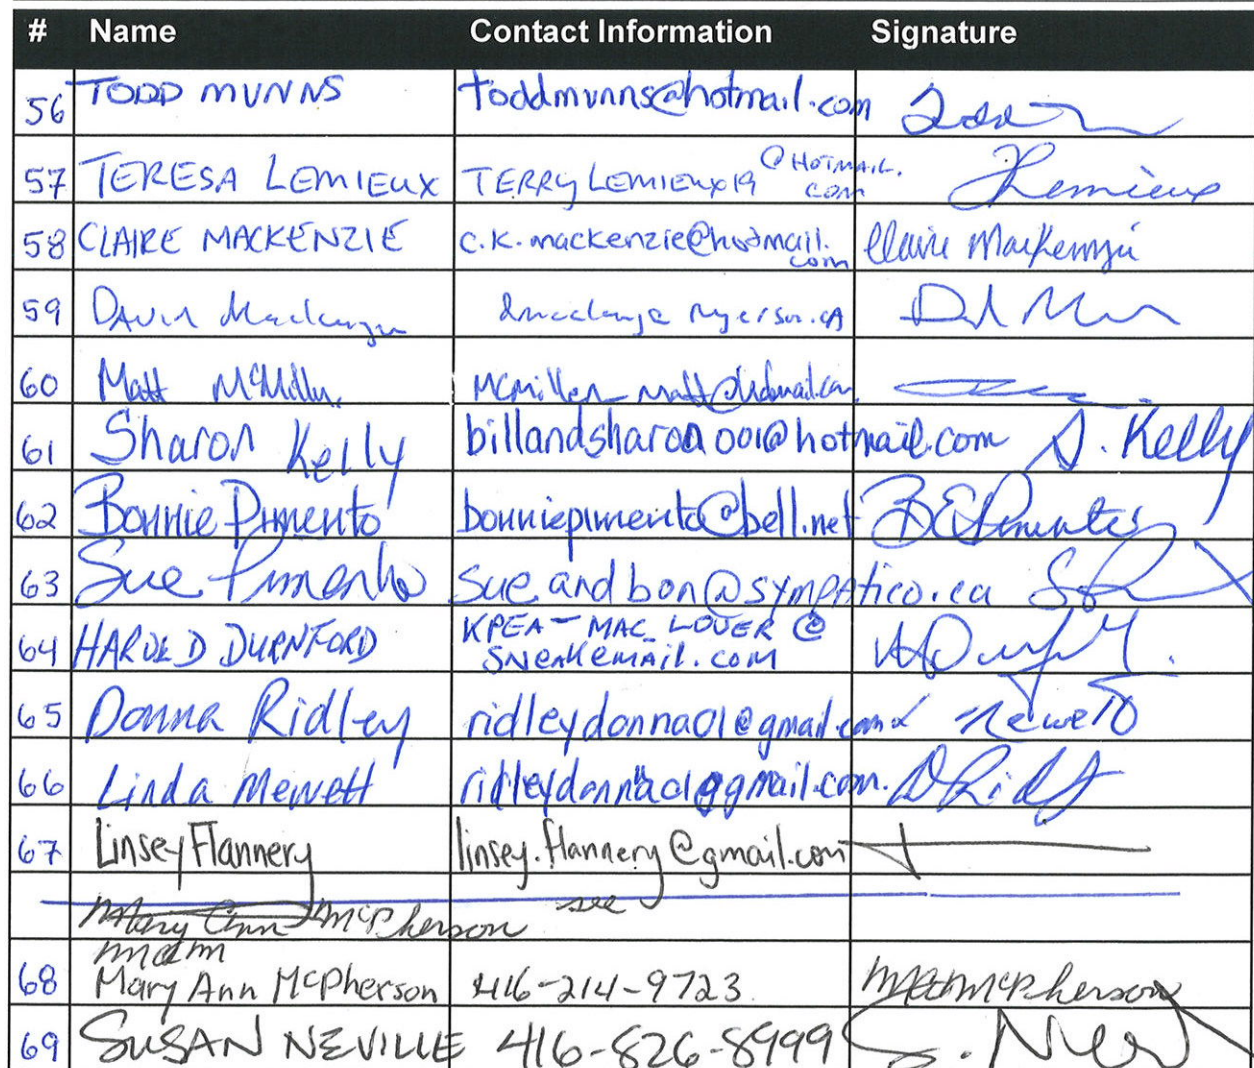 # Name Contact Information Signature
56 TODD MUNNS toddmunns@hotmail.com
57 TERESA LEMIEUX TERRYLEMIEUX19 @HOTMAIL.
com Lemieux
58 CLAIRE MACKENZIE c.k.mackenzie@hotmail. Claire MacKenzie
com
59 DAVID Mackenzie ryerson.CA
60 Matt McMillen mcmillen_matt@hotmail.com
61 Sharon Kelly billandsharon001@hotmail.com S. Kelly
62 Bonnie Pimento bonniepimento@bell.net
63 Sue Pimento sueandbon@sympatico.ca
64 HAROLD DURNFORD KPEA-MAC_LOVER @
SNEAKEMAIL.COM
65 Donna Ridley ridleydonna01@gmail.com
66 Linda Mewett ridleydonna01@gmail.com. D Ridley
67 Linsey Flannery linsey.flannery@gmail.com
Mary Ann McPherson see
68 Mary Ann McPherson 416-214-9723 McPherson
69 SUSAN NEVILLE 416-826-8999